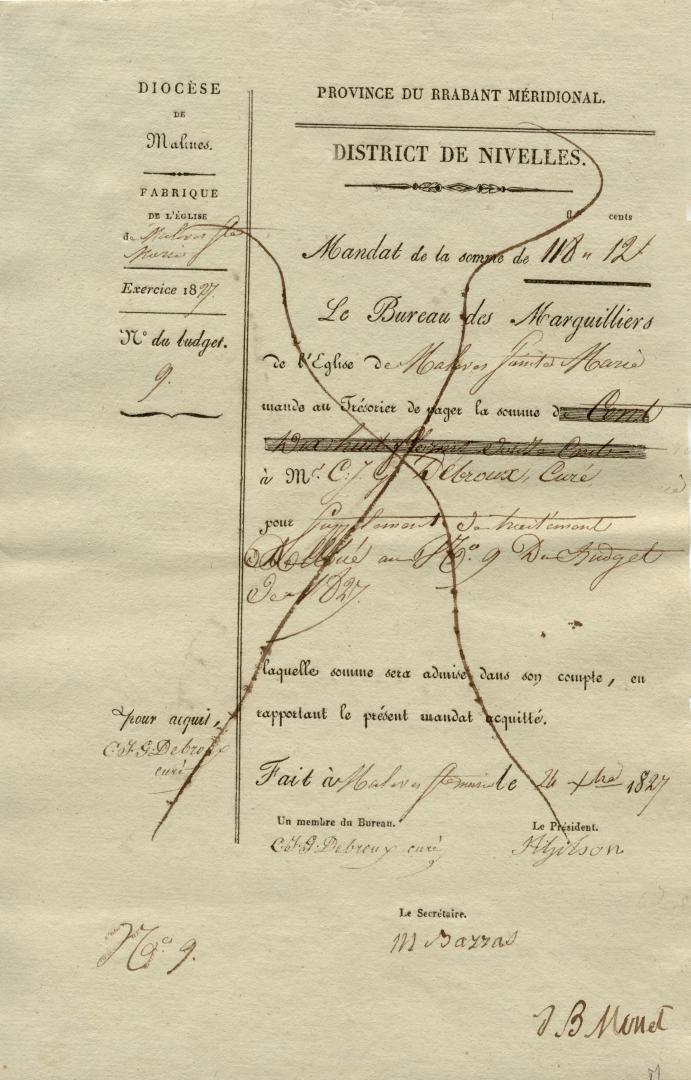 DIOCÈSE
DE
Malines.
FABRIQUE
DE L'ÉGLISE
de Maleves Ste
Marie
Exercice 1827.
N° du budget.
9.
Pour acquit,
C.J.G. Debroux
curé
N° 9.
PROVINCE DU RRABANT MÉRIDIONAL.
DISTRICT DE NIVELLES.
fl. cents
Mandat de la somme de 118 " 12
Le Bureau des Marguilliers
de l'Eglise de Maleves Sainte Marie
mande au Trésorier de payer la somme de Cent
Dix huit florins douze Cents
à Mr C: J. G. Debroux, Curé
pour Supplement de traitement
Alloué au N° 9 Du Budget
De 1827.
laquelle somme sera admise dans son compte, en
rapportant le présent mandat acquitté.
Fait à Maleves Ste marie le 24 xbre 1827
Un membre du Bureau.
C.J.G. Debroux curé
Le Président.
Le Secrétaire.
M Bazzas